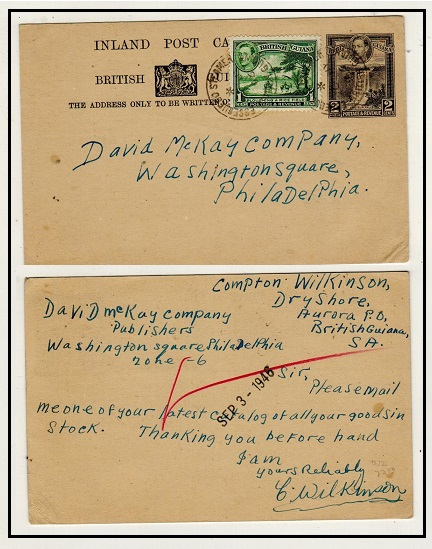 INLAND POST CA
BRITISH
THE ADDRESS ONLY TO BE WRITTEN O
BRITISH GUIANA
1
PLOUGHING A RICE FIELD
POSTAGE & REVENUE
STEAMER
2 2
POSTAGE & REVENUE
David McKay Company,
Washington Square,
Philadelphia.
Compton Wilkinson,
Dry Shore,
Aurora P.O,
British Guiana,
S.A.
David McKay Company
Publishers
Washington Square Philadelphia
Zone -6
SEP 3 - 1946
Sir,
Please mail
me one of your latest Catalog of all your goods in
Stock. Thanking you before hand
I am
yours Reliably
C. Wilkinson